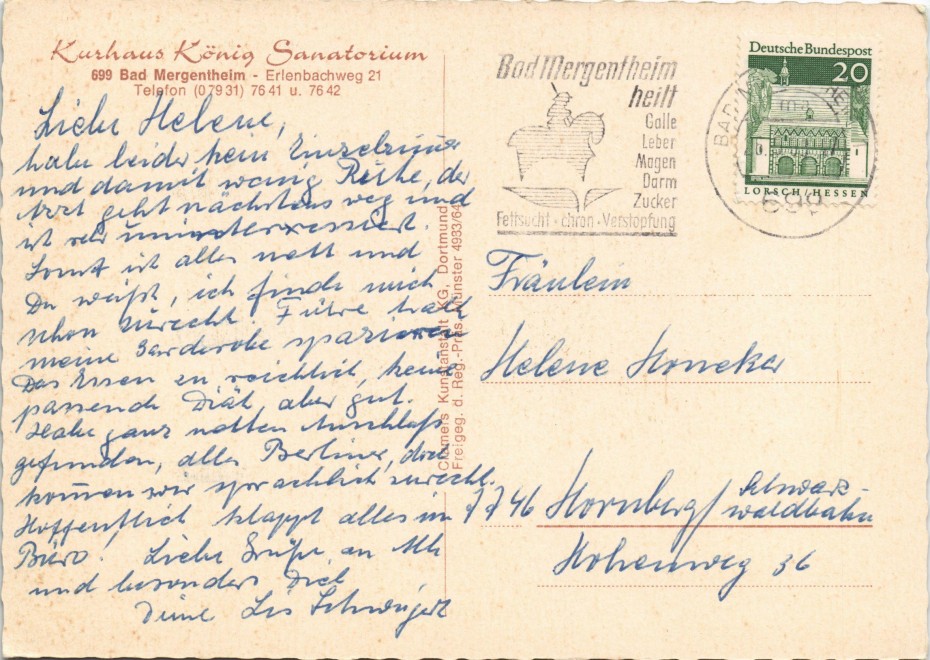 Kurhaus König Sanatorium
699 Bad Mergentheim - Erlenbachweg 21
Telefon (0 79 31) 76 41 u. 76 42
Liebe Helene,
habe leider kein Einzelzimmer
und damit wenig Ruhe, der
Arzt geht nächstens weg und
ist sehr uninteressiert.
Sonst ist alles nett und
Du weißt, ich finde mich
schon zurecht. Führe halt
meine Garderobe spazieren
Das Essen zu reichlich, keine
passende Diät, aber gut.
Habe ganz netten Anschluß
gefunden, alles Berliner, da
kommen wir sprachlich zurecht.
Hoffentlich klappt alles im
Büro! Liebe Grüße an
und besonders Dich
Deine
Cramers Kunstanstalt KG, Dortmund
Freigeg. d. Reg.-Präs. Münster 4933/64
Bad Mergentheim
heilt
Galle
Leber
Magen
Darm
Zucker
Fettsucht · chron · Verstopfung
BAD
699
Deutsche Bundespost
20
LORSCH/HESSEN
Fräulein
Helene Honeker
7746 Hornberg/Schwarz-
waldbahn
Hohenweg 36